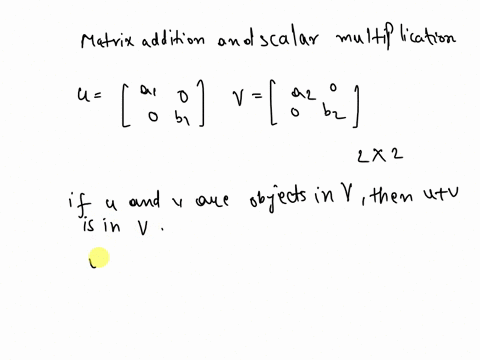 Matrix addition and scalar multiplication
u = [ a1 0 0 b1 ] V = [ a2 0 0 b2 ]
2 x 2
if u and v are objects in V, then u+v
is in V.